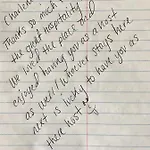 Thanks so much for
the great hospitality
We loved the place and
enjoyed having you as a host
as well! Whoever stays here
next is lucky to have you as
there host